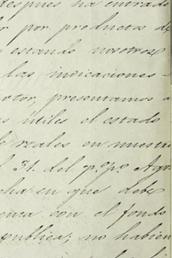 despues ha entrado
por productos de
estando nosotros
las indicaciones
presentamos a
utiles el estado
reales en nuestro
31. del p.º p.º Ago
en que debe
con el fondo
publica; no habien